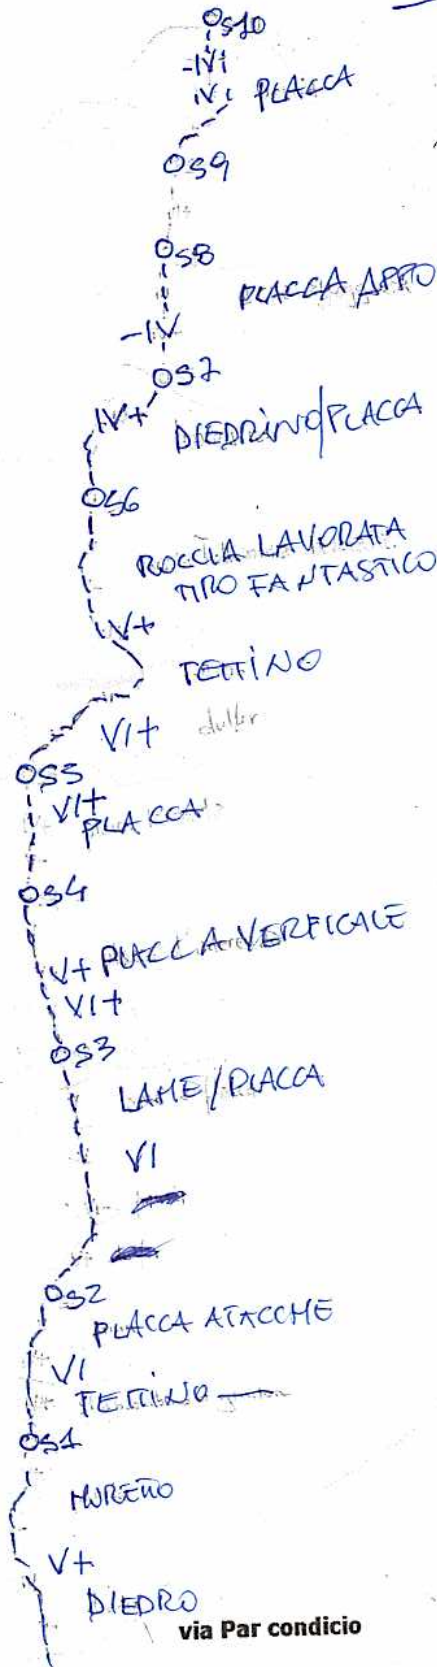 S10
-IVi
IVi PLACCA
S9
S8
PLACCA APPO
-IV
S7
IV+
DIEDRINO/PLACCA
S6
ROCCIA LAVORATA
TIRO FANTASTICO
V+
TETTINO
VI+
S5
VI+
PLACCA
S4
V+ PLACCA VERTICALE
VI+
S3
LAME/PLACCA
VI
S2
PLACCA ATACCHE
VI
TETTINO
S1
MURETTO
V+
DIEDRO
via Par condicio